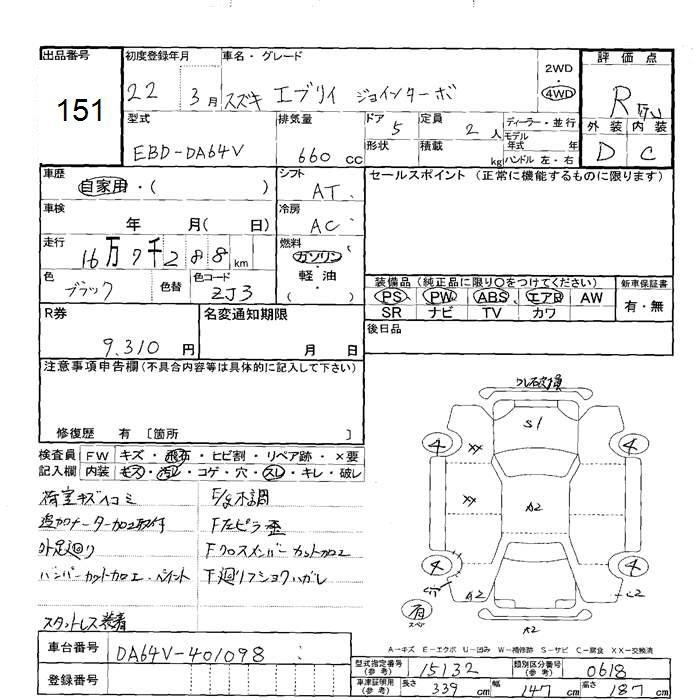 出品番号
151
初度登録年月
22 3月
車名・グレード
スズキ エブリイ ジョインターボ
2WD
4WD
評価点
R
外装 内装
D C
型式
EBD-DA64V
排気量
660 cc
ドア 5
形状
定員 2 人
積載 kg
ディーラー・並行
モデル年式 年
ハンドル 左・右
車歴
自家用・( )
シフト
AT
セールスポイント (正常に機能するものに限ります)
車検
年 月( 日)
冷房
AC
走行
16万7千288km
燃料
ガソリン
・
軽・油
( )
色
ブラック
色替
色コード
ZJ3
装備品 (純正品に限り○をつけてください)
PS PW ABS エアB AW
SR ナビ TV カワ
新車保証書
有・無
R券
9,310 円
名変通知期限
月 日
後日品
注意事項申告欄(不具合内容等は具体的に記入して下さい)
修復歴 有 [箇所 ]
検査員記入欄
FW キズ・飛石・ヒビ割・リペア跡・×要
内装 キズ・汚レ・コゲ・穴・スレ・キレ・破レ
荷室キズヘコミ
追加メーター加工取付
バンパーカット加工・ペイント
スタットレス装着
F左ピラー歪
Fクロスメンバーカット加工
下廻リフショクハガレ
S1
4 4
XX
XX
A2
4 4
A2
C2
有
スペア
A2
A−キズ E−エクボ U−凹み W−補修跡 S−サビ C−腐食 XX−交換済
車台番号
DA64V-401098
登録番号
型式指定番号(参考)
15132
類別区分番号(参考)
0618
車庫証明用(参考)
長さ 339 cm
幅 147 cm
高さ 187 cm